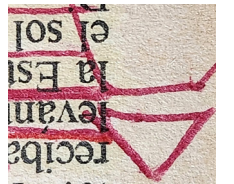 reciba
leván
la Est
el sol